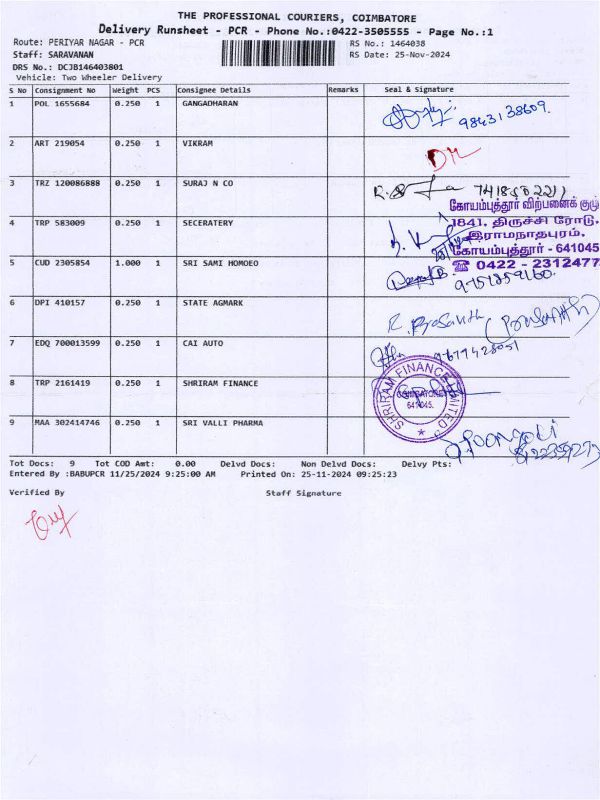 THE PROFESSIONAL COURIERS, COIMBATORE
Delivery Runsheet - PCR - Phone No.:0422-3505555 - Page No.:1
Route: PERIYAR NAGAR - PCR RS No.: 1464038
Staff: SARAVANAN RS Date: 25-Nov-2024
DRS No.: DCJB146403801
Vehicle: Two Wheeler Delivery
S No Consignment No Weight PCS Consignee Details Remarks Seal & Signature
1 POL 1655684 0.250 1 GANGADHARAN
9843138609.
2 ART 219054 0.250 1 VIKRAM
3 TRZ 120086888 0.250 1 SURAJ N CO
கோயம்புத்தூர் விற்பனைக் குழு
1841, திருச்சி ரோடு,
4 TRP 583009 0.250 1 SECERATERY
இராமநாதபுரம்.
கோயம்புத்தூர் - 641045
5 CUD 2305854 1.000 1 SRI SAMI HOMOEO
☎ 0422 - 2312477
6 DPI 410157 0.250 1 STATE AGMARK
R. Prasanth (Prasanth)
7 EDQ 700013599 0.250 1 CAI AUTO
9677428051
8 TRP 2161419 0.250 1 SHRIRAM FINANCE
SHRIRAM FINANCE LIMITED
COIMBATORE
641045.
9 MAA 302414746 0.250 1 SRI VALLI PHARMA
Tot Docs: 9 Tot COD Amt: 0.00 Delvd Docs: Non Delvd Docs: Delvy Pts:
Entered By :BABUPCR 11/25/2024 9:25:00 AM Printed On: 25-11-2024 09:25:23
Verified By Staff Signature